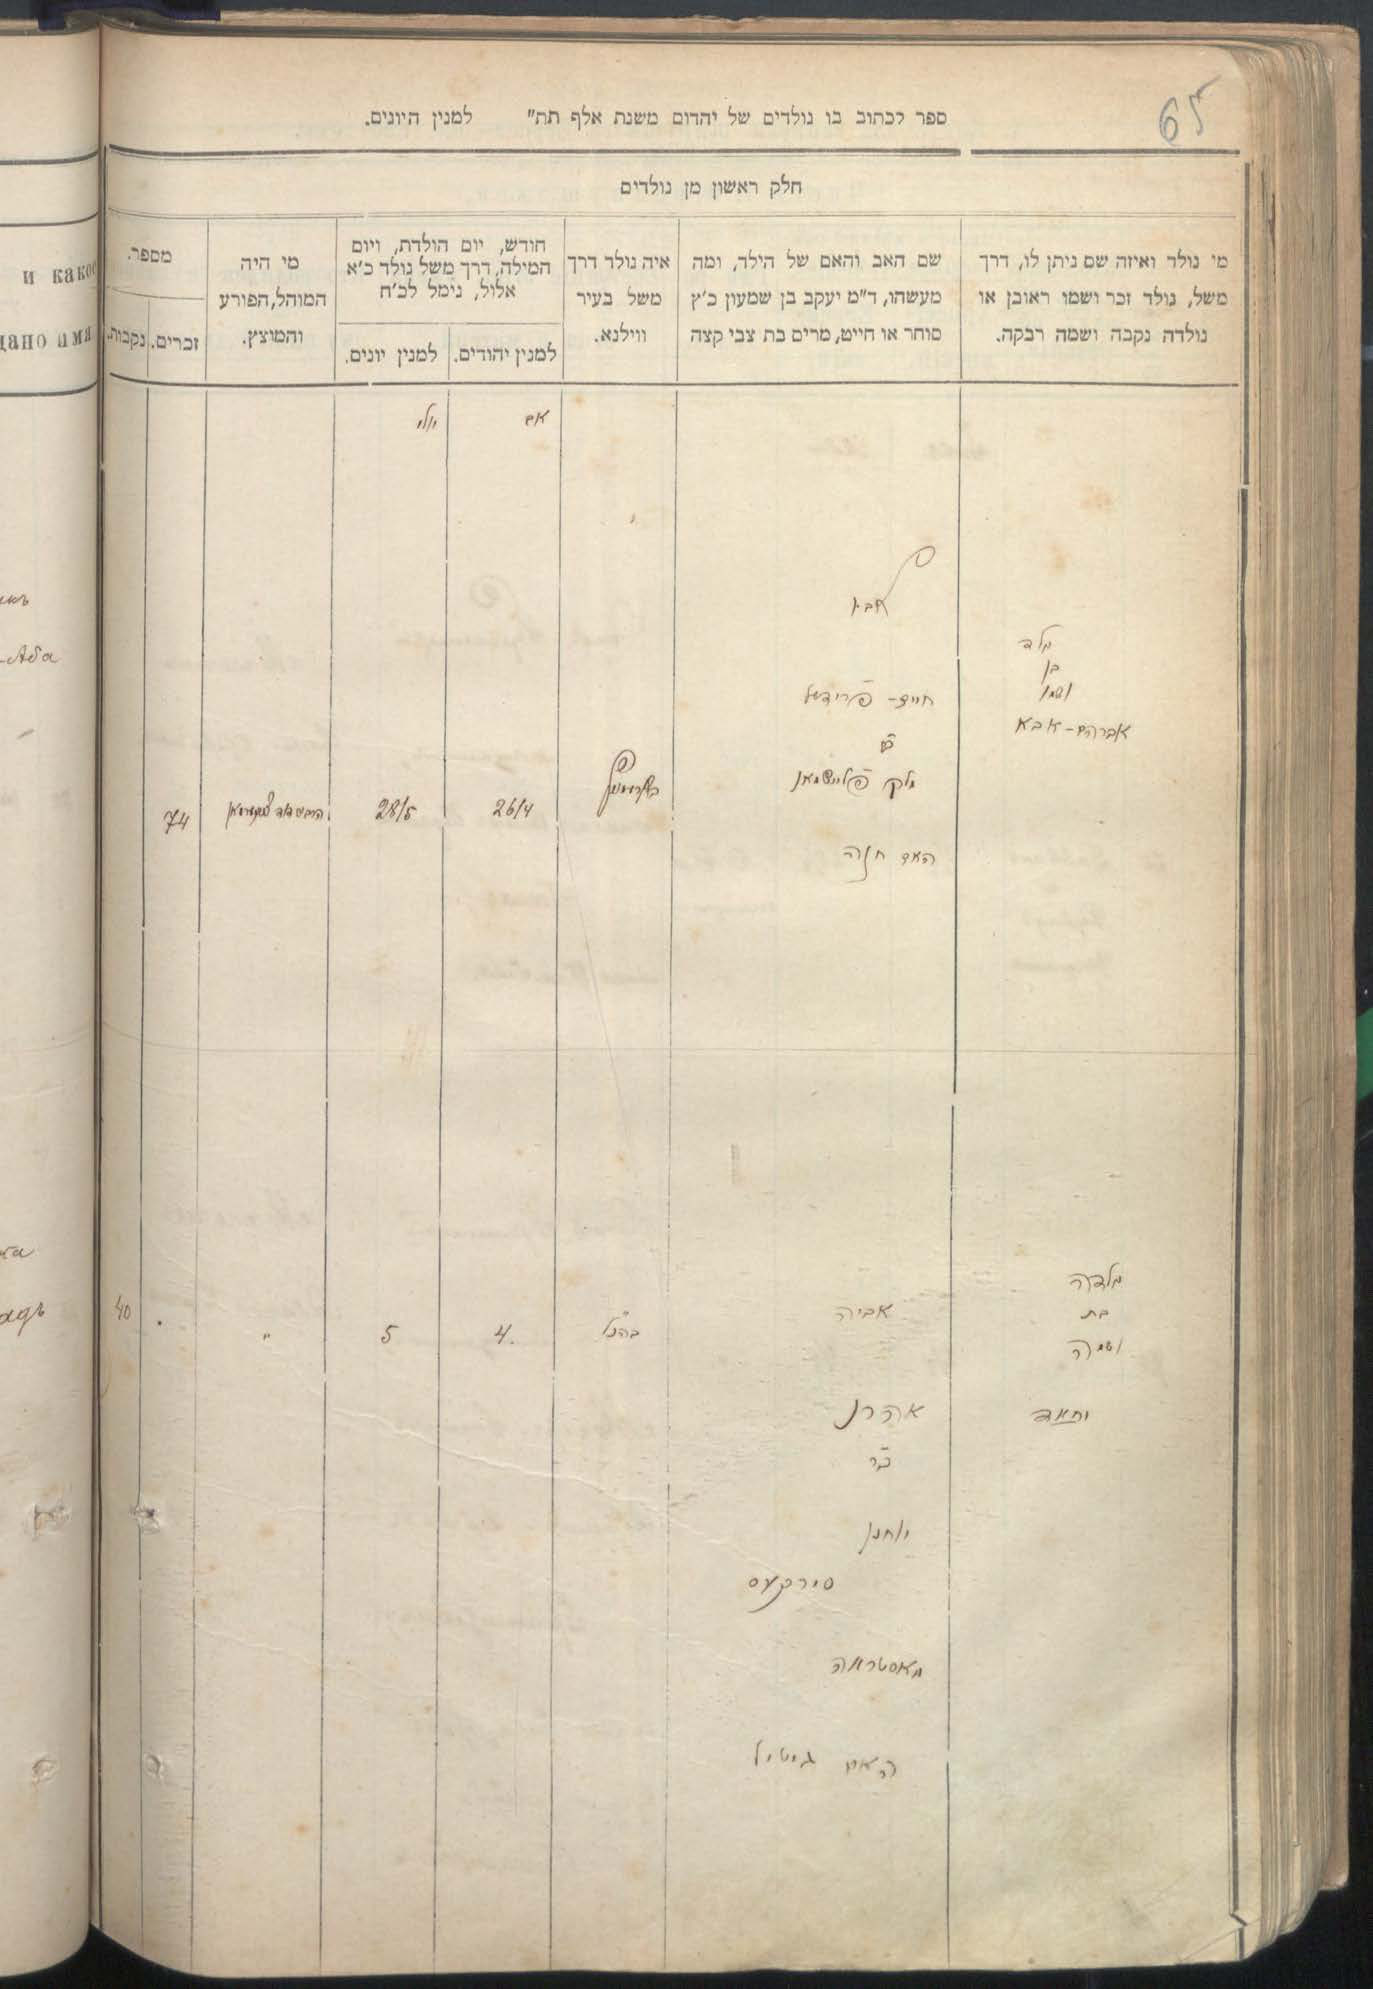 65
ספר לכתוב בו נולדים של יהדום משנת אלף תת״ למנין היונים.
חלק ראשון מן נולדים
מי נולד ואיזה שם ניתן לו, דרך
משל, נולד זכר ושמו ראובן או
נולדה נקבה ושמה רבקה.
שם האב והאם של הילד, ומה
מעשהו, ד״מ יעקב בן שמעון כ״ץ
סוחר או חייט, מרים בת צבי קצה
איה נולד דרך
משל בעיר
ווילנא.
חודש, יום הולדת, ויום
המילה, דרך משל נולד כ״א
אלול, נימל לכ״ח
למנין יהודים.
למנין יונים.
מי היה
המוהל, הפורע
והמוצץ.
מספר.
זכרים.
נקבות.
אב
יולי
נולד
בן
ושמו
אברהם-אבא
אביו
חיים-
האם חנה
26/4
28/5
74
נולדה
בת
ושמה
אביה
אהרן
בר
יוחנן
סירקעס
האם גיטיל
בהנ״ל
4.
5
"
40
и како
дано има
-Аба